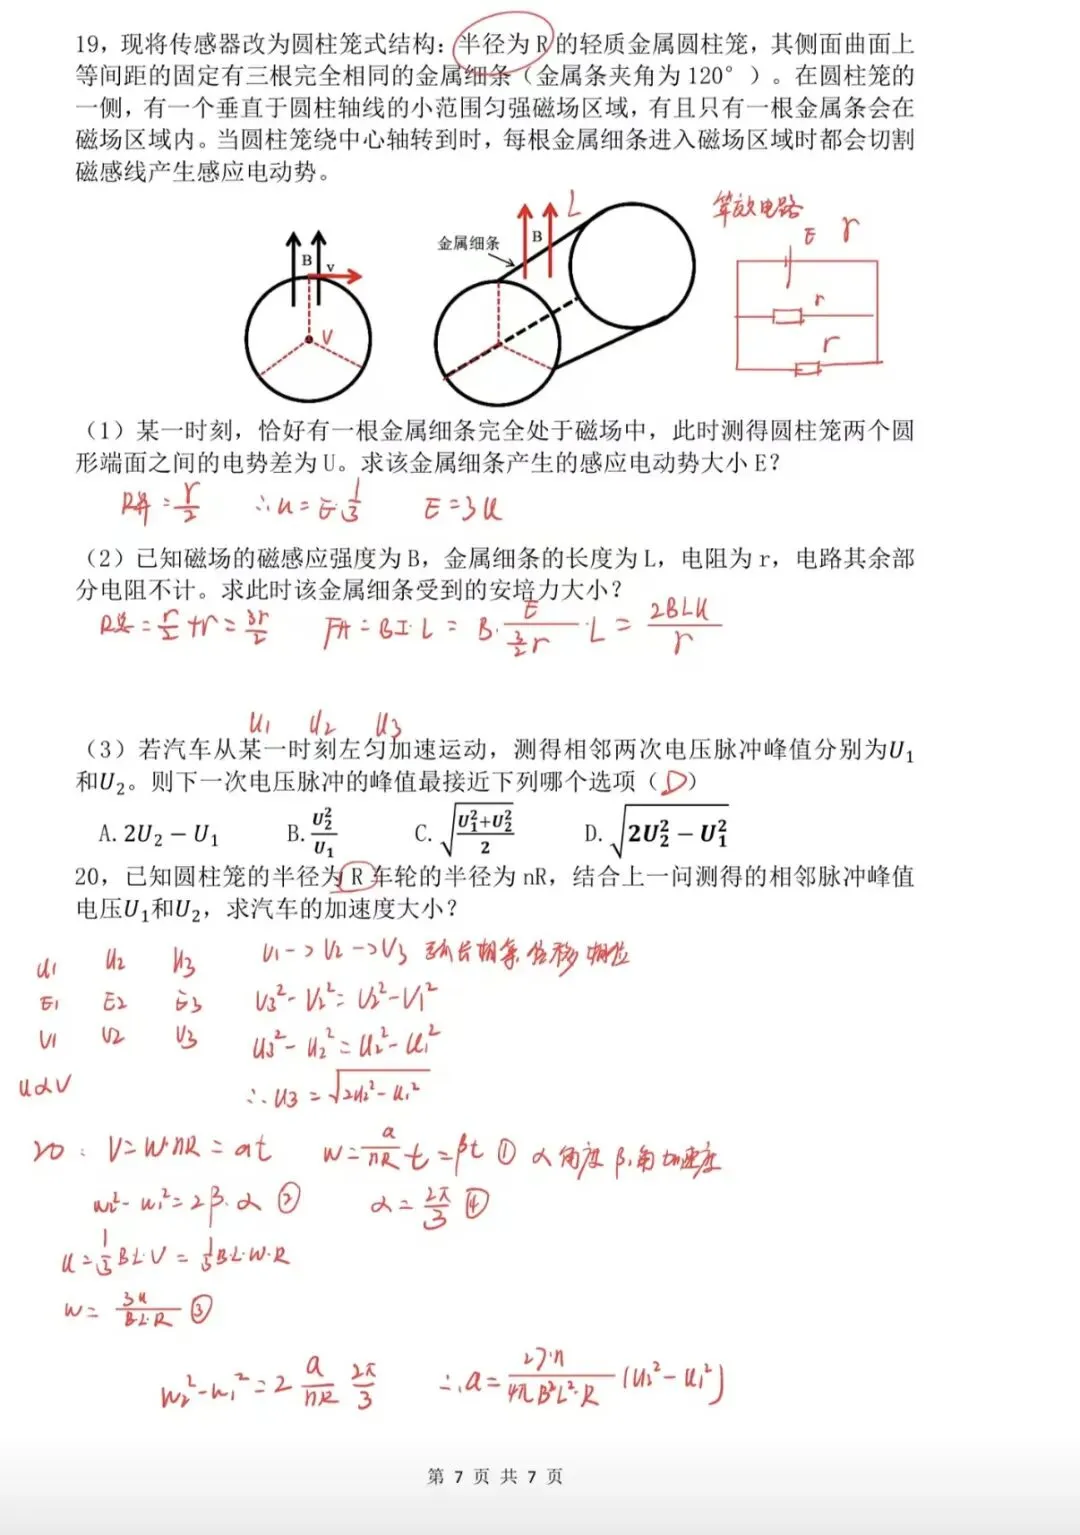 19，现将传感器改为圆柱笼式结构：半径为 R 的轻质金属圆柱笼，其侧面曲面上
等间距的固定有三根完全相同的金属细条（金属条夹角为 120°）。在圆柱笼的
一侧，有一个垂直于圆柱轴线的小范围匀强磁场区域，有且只有一根金属条会在
磁场区域内。当圆柱笼绕中心轴转到时，每根金属细条进入磁场区域时都会切割
磁感线产生感应电动势。
B v
V
金属细条
B
L
等效电路
E r
r
r
（1）某一时刻，恰好有一根金属细条完全处于磁场中，此时测得圆柱笼两个圆
形端面之间的电势差为 U。求该金属细条产生的感应电动势大小 E？
R并 = r/2 ∴u = E·1/3 E = 3u
（2）已知磁场的磁感应强度为 B，金属细条的长度为 L，电阻为 r，电路其余部
分电阻不计。求此时该金属细条受到的安培力大小？
R总 = r/2 + r = 3r/2 FA = BI·L = B·E/(3/2 r)·L = 2BLU/r
U1 U2 U3
（3）若汽车从某一时刻左匀加速运动，测得相邻两次电压脉冲峰值分别为U₁
和U₂。则下一次电压脉冲的峰值最接近下列哪个选项（D）
A. 2U₂ − U₁ B. U₂²/U₁ C. √((U₁²+U₂²)/2) D. √(2U₂² − U₁²)
20，已知圆柱笼的半径为 R 车轮的半径为 nR，结合上一问测得的相邻脉冲峰值
电压U₁和U₂，求汽车的加速度大小？
u1 u2 u3 V1 -> V2 -> V3 弧长相等 位移相位
E1 E2 E3 V3² - V2² = V2² - V1²
V1 V2 V3 u3² - u2² = u2² - u1²
u∝V ∴u3 = √(2u2² - u1²)
20: V = W·nR = at w = a/nR t = βt ① α角度 β:角加速度
w2² - w1² = 2β·α ② α = 2π/3 ④
u = 1/3 B·L·V = 1/3 B·L·W·R
w = 3u/B·L·R ③
w2² - w1² = 2 a/nR 2π/3 ∴a = 27·n/4πB²L²·R (u2² - u1²)
第 7 页 共 7 页